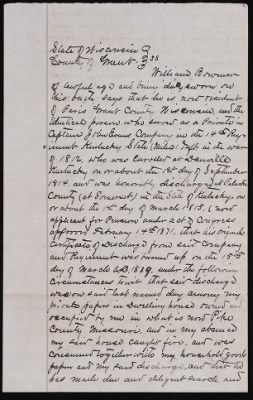 State of Wisconsin }
County of Grant } ss
William Bowman
of lawful age and being duly sworn on
his oath says that he is now resident
of Paris Grant County Wisconsin, and the
identical person who served as a Private in
Captain John Company in the 14th Reg-
iment Kentucky State in the war
of 1812, who was enrolled at Danville
Kentucky on or about the 1st day of September
1814 and was honorably discharged at
County (at Somerset) in the State of Kentucky on
or about the day of March 1815. I am
applicant for Pension under act of Congress
approved February 14th 1871. that his original
Certificate of Discharge from said Company
and Regiment was burned up on the 15th
day of March A.D. 1839, under the following
circumstances to wit: that said discharge
was on said last named day among my
private papers in Dwelling house owned &
occupied by me in what is now Pike
County Missouri, and in my absence
my said house caught fire, and was
consumed together with my household goods
papers and my said discharge, and that he
has made due and diligent search and